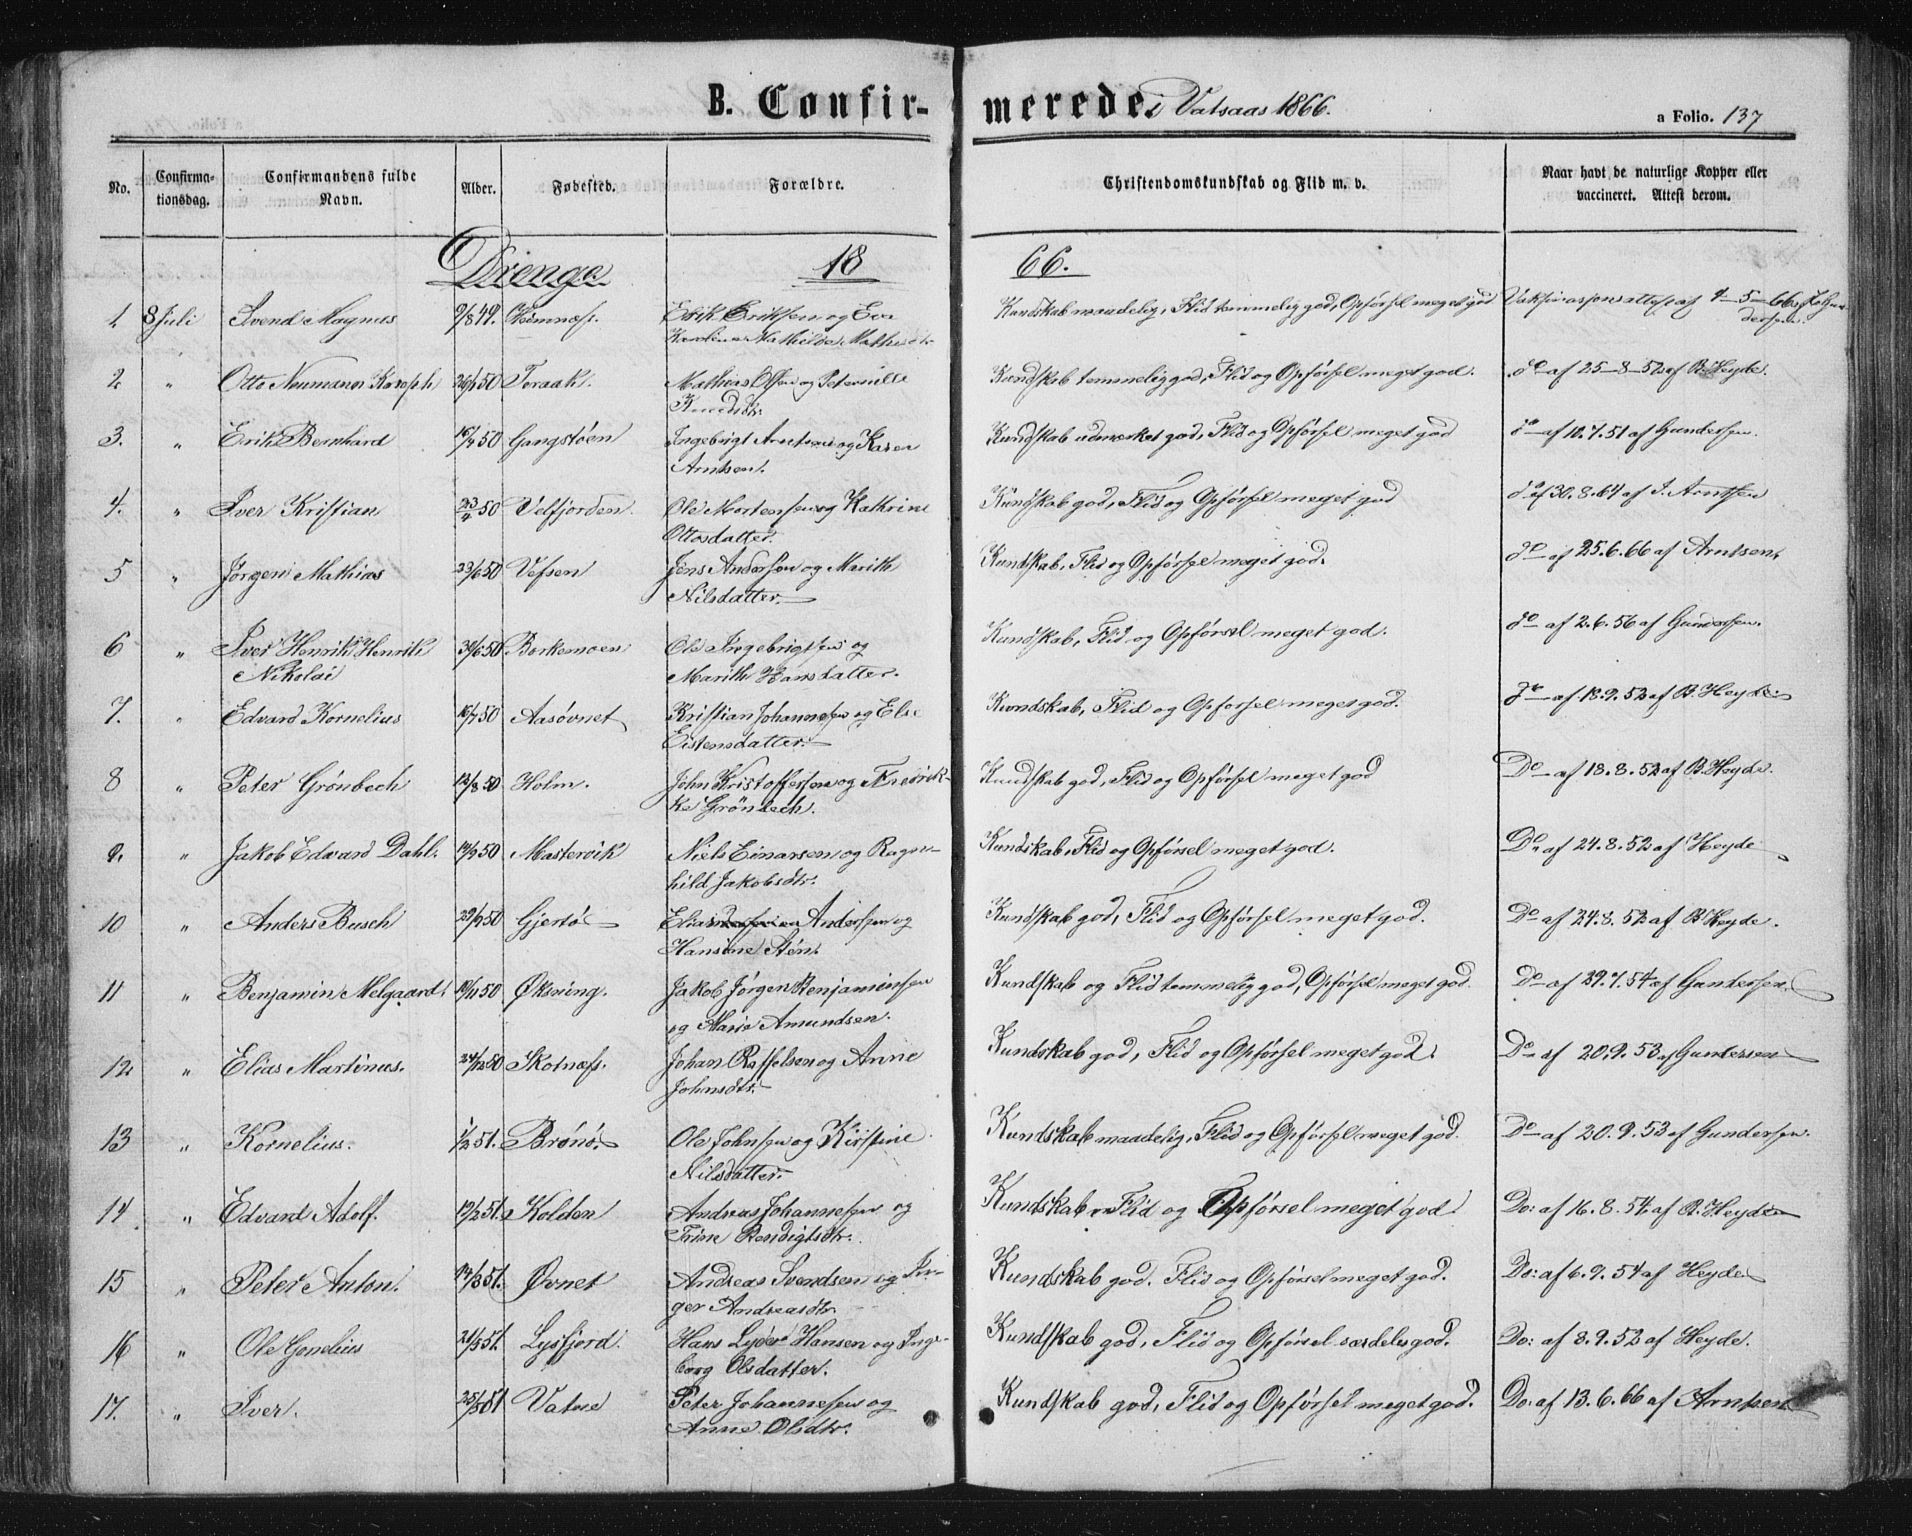 B. Confir-
merede i Vatsaas 1866.
a Folio. 137
No.
Confirma-
tionsdag.
Confirmandens fulde
Navn.
Alder.
Fødested.
Forældre.
Christendomskundskab og Flid m. v.
Naar havt de naturlige Kopper eller
vaccineret. Attest derom.
Drenge 18 66.
1. 8 Juli Svend Magnus 9/8 49. Hemnæs. Erik Eriksen og Eva Kundskab maadelig, Flid temmelig god, Opførsel meget god
2 " Otto Neumann Kasph 26/1 50 Toraak. Mathias Olsen og Peternille Kundskab temmelig god, Flid og Opførsel meget god. do af 25-8-52 af B. Heyde.
Knudsdtr.
3. " Erik Bernhard 16/4 50 Gangstøen Ingebrigt Arntsen og Karen Kundskab udmærket god, Flid og Opførsel meget god do af 10.7.51 af Gundersen.
Arntsen.
4. " Iver Kristian 23/4 50 Velfjorden. Ole Mortensen og Kathrine Kundskab god, Flid og Opførsel meget god do af 30.8.64 af I. Arntsen
Ottosdatter.
5 " Jørgen Mathias 23/6 50 Vefsen Jens Andersen og Marith Kundskab, Flid og Opførsel meget god. do af 25.6.66 af Arntsen.
Nilsdatter.
6 " Iver Henrik Henrik 30/6 50 Borkemoen Ole Ingebrigtsen og Kundskab, Flid og Opførsel meget god. do af 2.6.56 af Gundersen.
Nikolai Marith Hansdatter.
7. " Edvard Kornelius 16/7 50 Aasøvnet Kristian Johannesen og Else Kundskab, Flid og Opførsel meget god. do af 18.9.52 af B. Heyde.
Eistensdatter.
8 " Peter Grønbech 12/8 50 Holm. John Kristoffersen og Fredrik- Kundskab god, Flid og Opførsel meget god Do af 18.8.52 af B. Heyde.
ke Grønbech.
9. " Jakob Edvard Dahl. 14/9 50 Mastervik Niels Einarsen og Ragn- Kundskab, Flid og Opførsel meget god. Do af 24.8.52 af Heyde
hild Jakobsdtr.
10 " Anders Busch 29/9 50 Gjertø Elias Andersen og Kundskab god, Flid og Opførsel meget god. Do af 24.8.52 af B. Heyde.
Hansine Stén.
11 " Benjamin Melgaard. 10/11 50 Øksning. Jakob Jørgen Benjaminsen Kundskab og Flid temmelig god, Opførsel meget god. Do af 29.7.54 af Gundersen.
og Marie Amundsen.
12 " Elias Martinus. 24/12 50 Skotnæs. Johan Raffelsen og Anne Kundskab god, Flid og Opførsel meget god. Do af 20.9.53 af Gundersen
Johnsdtr.
13 " Kornelius. 1/2 51. Brønø Ole Johnsen og Kirstine Kundskab maadelig, Flid og Opførsel meget god. Do af 20.9.53 af Gundersen.
Nilsdatter.
14 " Edvard Adolf. 19/2 51. Kolden Andreas Johannesen og Kundskab, Flid og Opførsel meget god Do: af 16.8.54 af B. Heyde
Trine Bendigtsdtr.
15 " Peter Anton. 14/3 51. Øvnet Andreas Svendsen og In- Kundskab god. Flid og Opførsel meget god. Do: af 6.9.54 af Heyde
ger Andreasdtr.
16 " Ole Gonelius 21/3 51. Lysfjord. Hans Lyder Hansen og Inge- Kundskab god, Flid og Opførsel særdeles god. Do: af 8.9.52 af Heyde.
borg Olsdatter.
17. " Iver. 25/3 51 Vatne Peter Johannesen og Kundskab god, Flid og Opførsel meget god. Do: af 13.6.66 af Arntsen
Anne Olsdtr.